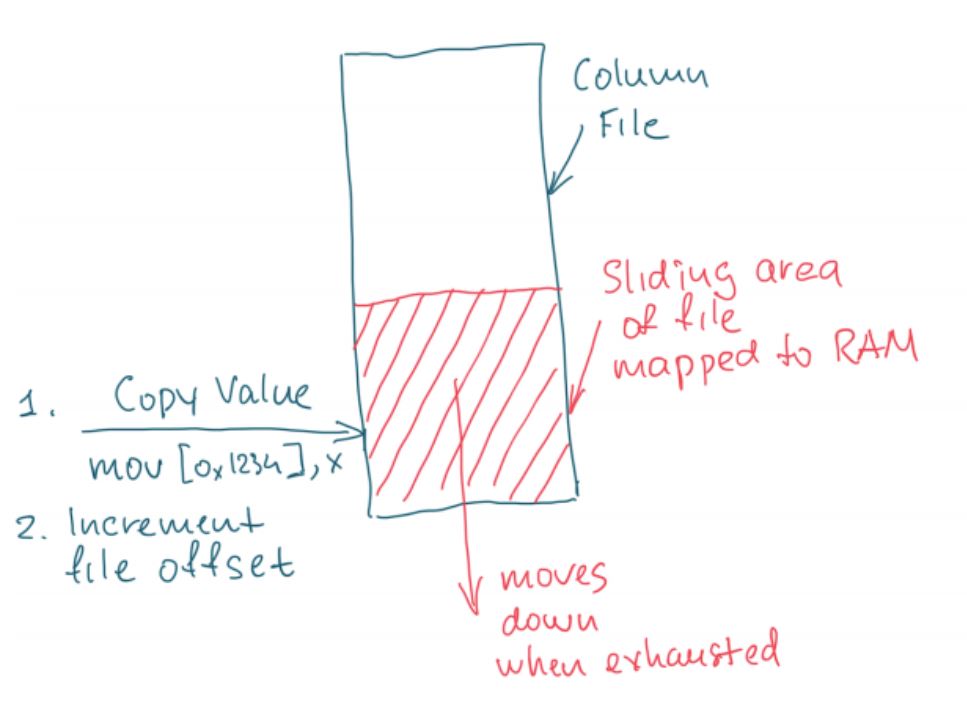 Column
File
Sliding area
of file
mapped to RAM
1. Copy Value
mov [0x1234], x
2. Increment
file offset
moves
down
when exhausted